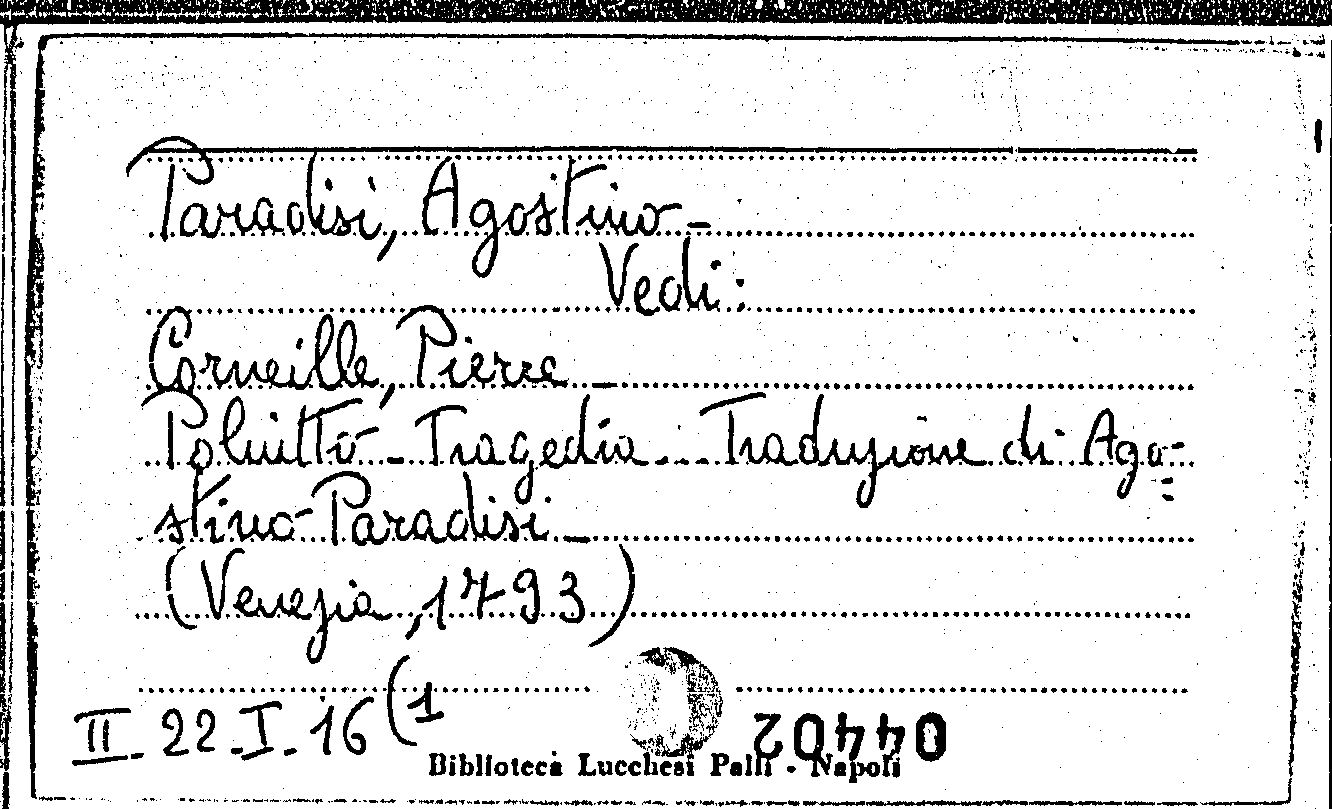 Paradisi, Agostino -
Vedi:
Corneille, Pierre -
Poliutto - Tragedia - Traduzione di Ago=
stino Paradisi -
(Venezia, 1793)
II - 22 - I - 16 (1
04402
Biblioteca Lucchesi Palli - Napoli